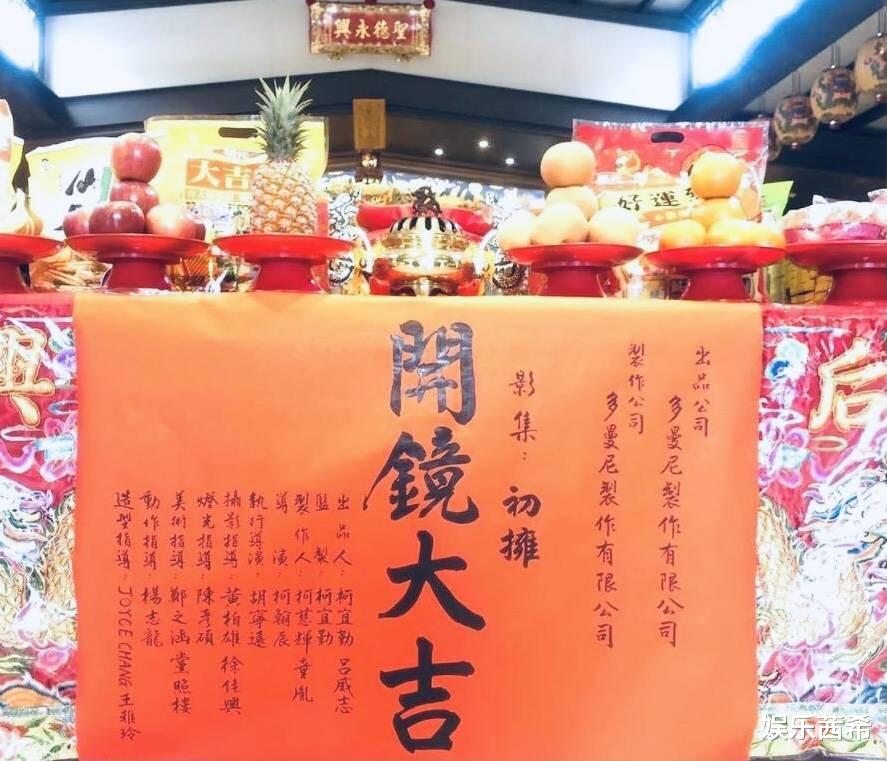 聖德永興
大吉
好運
興
后
出品公司
多曼尼製作有限公司
製作公司
多曼尼製作有限公司
影集：初擁
開鏡大吉
出品人：柯宜勤 呂威志
監製：柯宜勤
製作人：柯慧輝 童胤
導演：柯翰辰
執行導演：胡寧遠
攝影指導：黃柏雄 徐佳興
燈光指導：陳彥碩
美術指導：鄭之涵 堂照樓
動作指導：楊志龍
造型指導：JOYCE CHANG 王雅玲
娱乐茜希